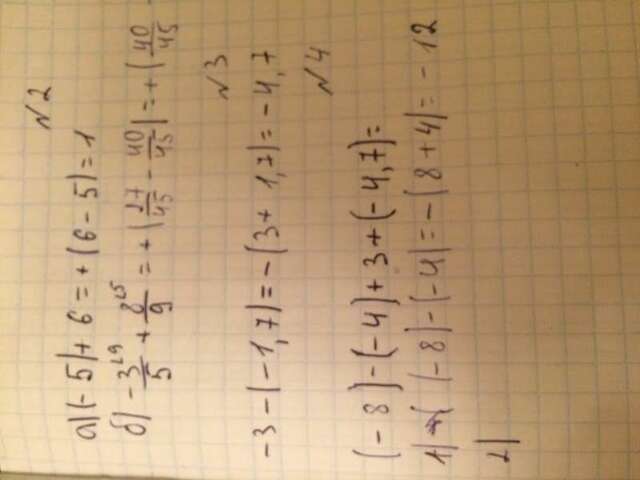 №2
а) (-5)+6=+(6-5)=1
б) -3^{⌊9}/5 + 8^{⌊5}/9 = +(27/45 - 40/45) = +(40/45 -
№3
-3-(-1,7)=-(3+1,7)=-4,7
№4
(-8)-(-4)+3+(-4,7)=
1) (-8)-(-4)=-(8+4)=-12
2)